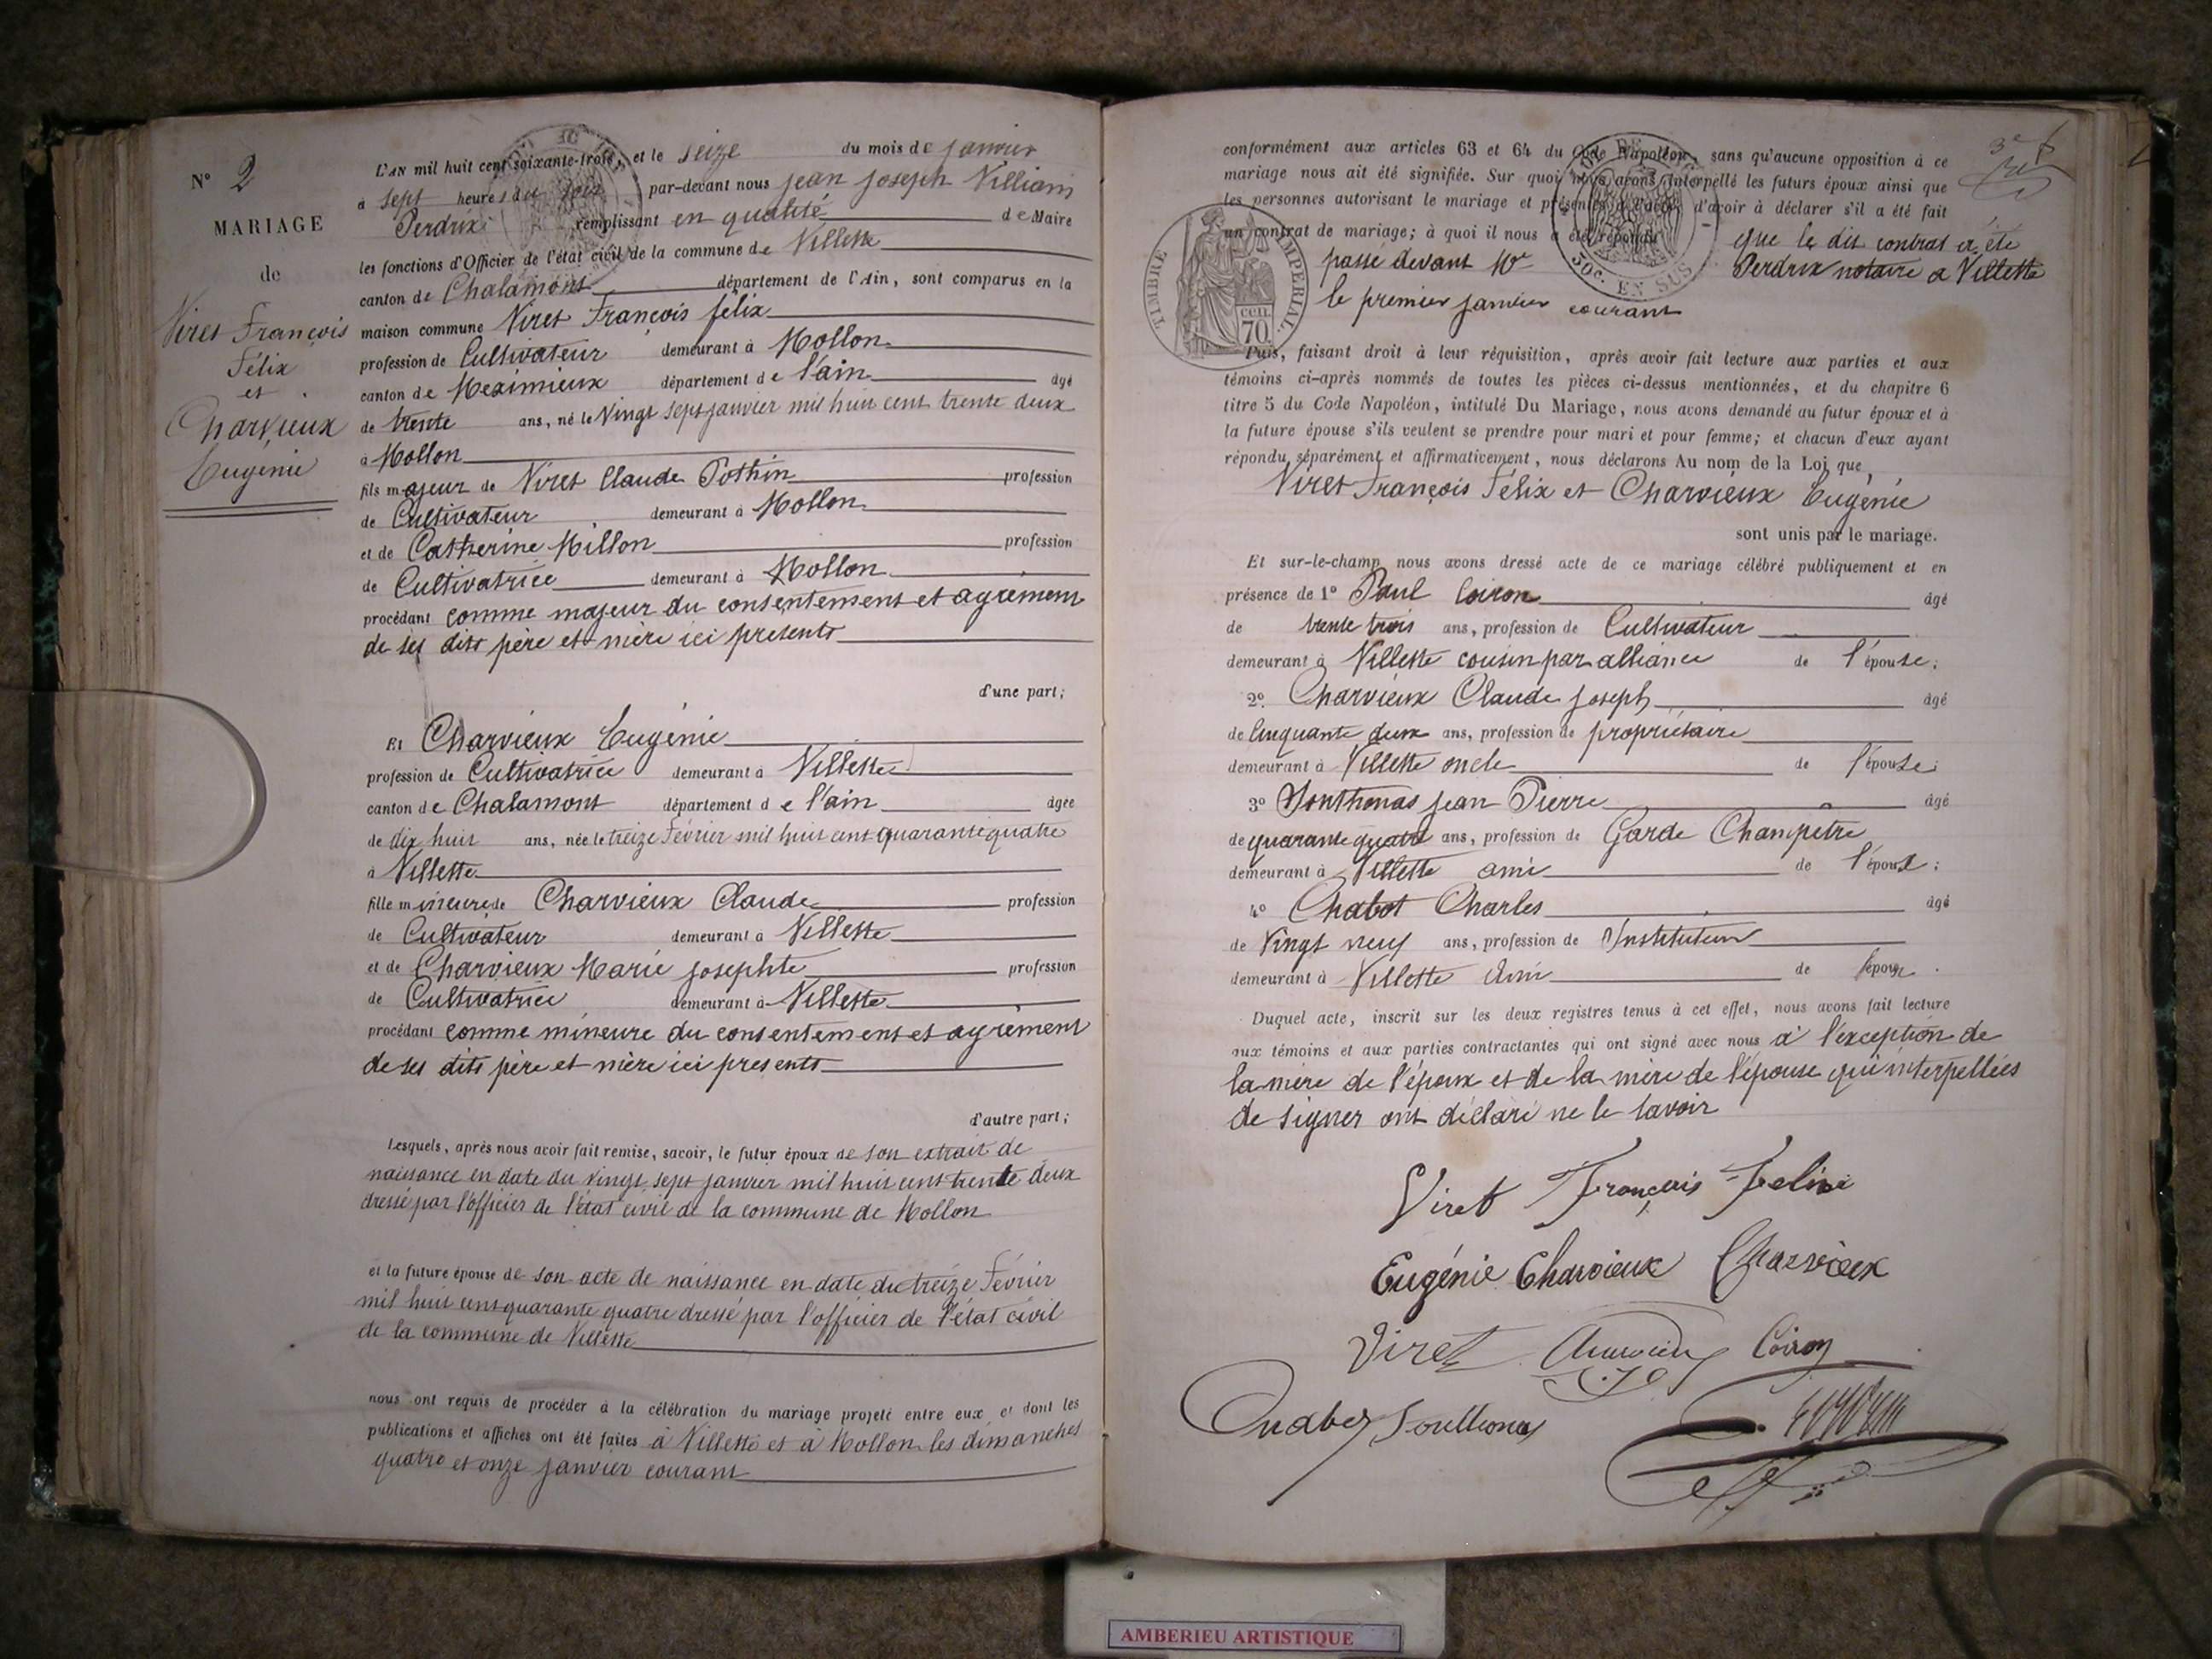 N° 2
MARIAGE
de
Viret François
Félix
et
Charvieux
Eugénie
L'AN mil huit cent soixante-trois, et le seize du mois de janvier
à sept heures du soir par-devant nous jean joseph Villiam
Perdrix remplissant en qualité de Maire
les fonctions d'Officier de l'état civil de la commune de Villette
canton de Chalamont département de l'Ain, sont comparus en la
maison commune Viret François félix
profession de Cultivateur demeurant à Mollon
canton de Meximieux département de l'ain âgé
de trente ans, né le Vingt sept janvier mil huit cent trente deux
à Mollon
fils majeur de Viret Claude Pothin profession
de Cultivateur demeurant à Mollon
et de Catherine Millon profession
de Cultivatrice demeurant à Mollon
procédant comme majeur du consentement et agrément
de ses dits père et mère ici presents
d'une part;
Et Charvieux Eugénie
profession de Cultivatrice demeurant à Villette
canton de Chalamont département de l'ain âgée
de dix huit ans, née le treize Février mil huit cent quarante quatre
à Villette
fille mineure de Charvieux Claude profession
de Cultivateur demeurant à Villette
et de Charvieux Marie josephte profession
de Cultivatrice demeurant à Villette
procédant comme mineure du consentement et agrément
de ses dits père et mère ici presents
d'autre part;
Lesquels, après nous avoir fait remise, savoir, le futur époux de son extrait de
naissance en date du vingt sept janvier mil huit cent trente deux
dressé par l'officier de l'état civil de la commune de Mollon
et la future épouse de son acte de naissance en date du treize Février
mil huit cent quarante quatre dressé par l'officier de l'état civil
de la commune de Villette
nous ont requis de procéder à la célébration du mariage projeté entre eux et dont les
publications et affiches ont été faites à Villette et à Mollon les dimanches
quatre et onze janvier courant
3e
conformément aux articles 63 et 64 du Code Napoléon, sans qu'aucune opposition à ce
mariage nous ait été signifiée. Sur quoi nous avons interpellé les futurs époux ainsi que
les personnes autorisant le mariage et présentes à l'acte, d'avoir à déclarer s'il a été fait
un contrat de mariage; à quoi il nous a été répondu que le dit contrat a été
passé devant Me Perdrix notaire a Villette
le premier janvier courant
TIMBRE IMPERIAL
cen. 70
50c. EN SUS
Puis, faisant droit à leur réquisition, après avoir fait lecture aux parties et aux
témoins ci-après nommés de toutes les pièces ci-dessus mentionnées, et du chapitre 6
titre 5 du Code Napoléon, intitulé Du Mariage, nous avons demandé au futur époux et à
la future épouse s'ils veulent se prendre pour mari et pour femme; et chacun d'eux ayant
répondu séparément et affirmativement, nous déclarons Au nom de la Loi que
Viret François Félix et Charvieux Eugénie
sont unis par le mariage.
Et sur-le-champ nous avons dressé acte de ce mariage célébré publiquement et en
présence de 1° Paul Coiron âgé
de trente trois ans, profession de Cultivateur
demeurant à Villette cousin par alliance de l'épouse;
2° Charvieux Claude joseph âgé
de Cinquante deux ans, profession de propriétaire
demeurant à Villette oncle de l'épouse;
3° jean Pierre âgé
de quarante quatre ans, profession de Garde Champêtre
demeurant à Villette ami de l'époux;
4° Chabot Charles âgé
de Vingt neuf ans, profession de Instituteur
demeurant à Villette ami de l'époux.
Duquel acte, inscrit sur les deux registres tenus à cet effet, nous avons fait lecture
aux témoins et aux parties contractantes qui ont signé avec nous à l'exception de
la mère de l'époux et de la mère de l'épouse qui interpellées
de signer ont déclaré ne le savoir
Viret François Felix
Eugénie Charvieux Charvieux
Viret Charvieux Coiron
Chabot
AMBERIEU ARTISTIQUE